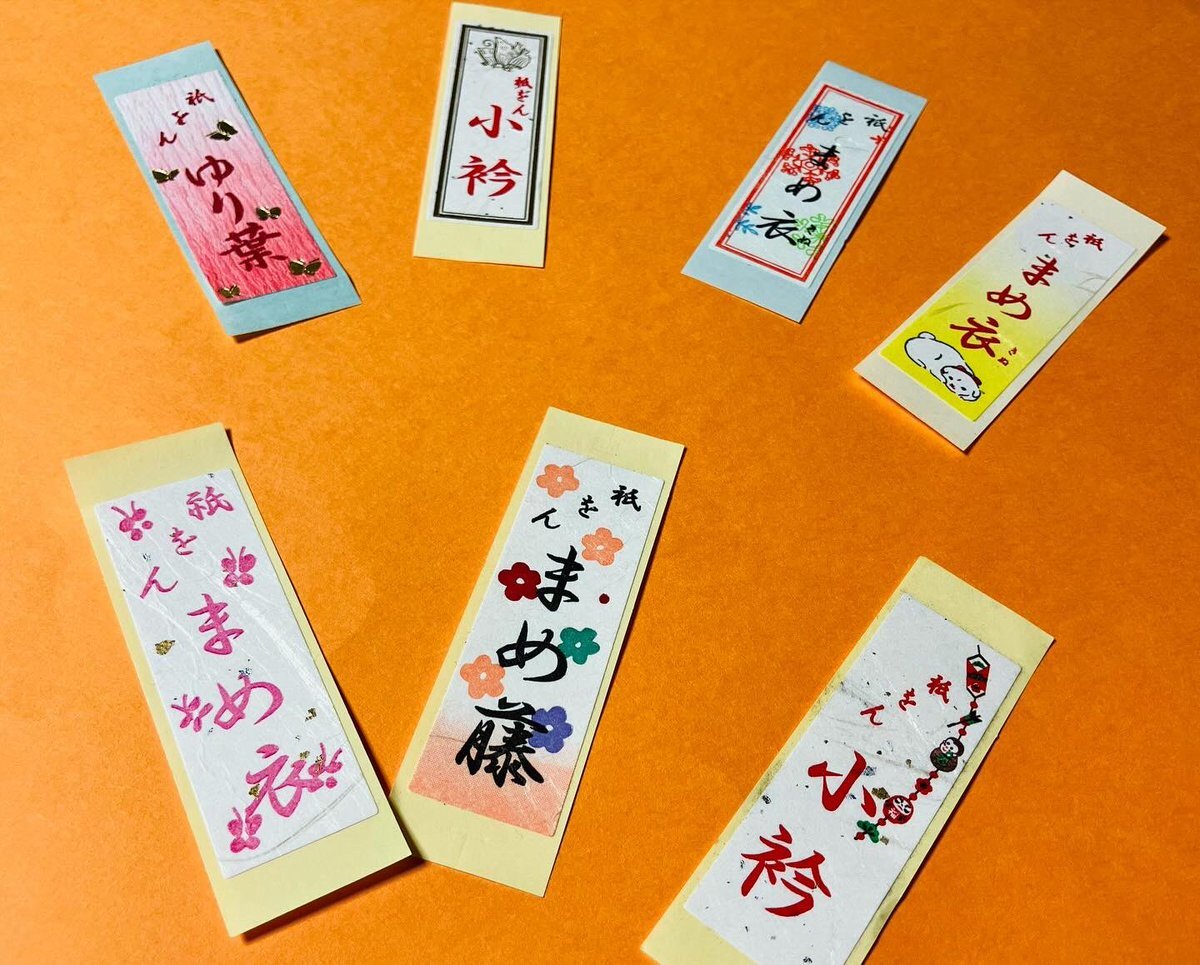 祇をん
ゆり葉
祇をん
小衿
祇をん
まめ衣
きぬ
祇をん
まめ衣
きぬ
祇をん
まめ衣
祇をん
まめ藤
祇をん
小衿